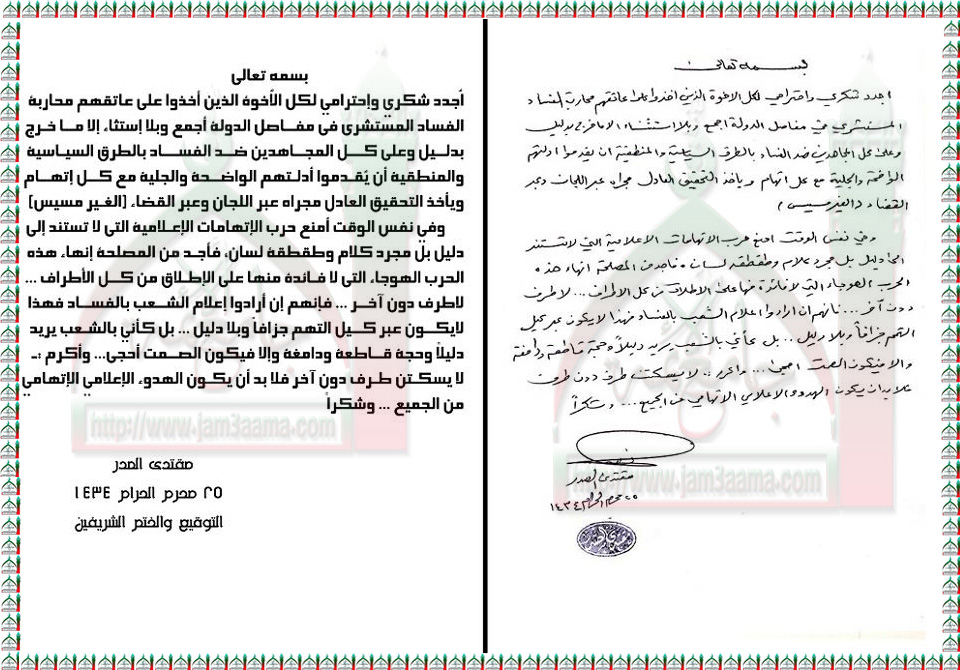 بسمه تعالى
أجدد شكري واحترامي لكل الاخوة الذين اخذوا على عاتقهم محاربة الفساد
المستشري في مفاصل الدولة اجمع وبلا استثناء الا ما خرج بدليل
وعلى كل المجاهدين ضد الفساد بالطرق السياسية والمنطقية ان يقدموا ادلتهم
الواضحة والجلية مع كل اتهام وياخذ التحقيق العادل مجراه عبر اللجان وعبر
القضاء (الغير مسيس)
وفي نفس الوقت امنع حرب الاتهامات الاعلامية التي لا تستند
الى دليل بل مجرد كلام وطقطقة لسان، فاجد من المصلحة انهاء هذه
الحرب الهوجاء التي لا فائدة منها على الاطلاق من كل الاطراف ... لا طرف
دون آخر ... فانهم ان ارادوا اعلام الشعب بالفساد فهذا لا يكون عبر كيل
التهم جزافاً وبلا دليل ... بل كأني بالشعب يريد دليلاً وحجة قاطعة ودامغة
والا فيكون الصمت احجى ... واكرر :. لا يسكتن طرف دون طرف
فلا بد ان يكون الهدوء الاعلامي الاتهامي من الجميع ... وشكراً
مقتدى الصدر
٢٥ محرم الحرام ١٤٣٤
بسمه تعالى
أجدد شكري وإحترامي لكل الأخوة الذين أخذوا على عاتقهم محاربة
الفساد المستشري في مفاصل الدولة أجمع وبلا إستثاء إلا ما خرج
بدليل وعلى كل المجاهدين ضد الفساد بالطرق السياسية
والمنطقية أن يُقدموا أدلتهم الواضحة والجلية مع كل إتهام
ويأخذ التحقيق العادل مجراه عبر اللجان وعبر القضاء، [الغير مسيس]
وفي نفس الوقت أمنع حرب الإتهامات الإعلامية التي لا تستند إلى
دليل بل مجرد كلام وطقطقة لسان، فأجد من المصلحة إنهاء، هذه
الحرب الهوجاء، التي لا فائدة منها على الإطلاق من كل الأطراف ...
لاطرف دون آخر ... فإنهم إن أرادوا إعلام الشعب بالفساد فهذا
لايكون عبر كيل التهم جزافاً وبلا دليل ... بل كأني بالشعب يريد
دليلاً وحجة قاطعة ودامغة وإلا فيكون الصمت أحجى... وأكرم :ـ
لا يسكتن طرف دون آخر فلا بد أن يكون الهدوء الإعلامي الإتهامي
من الجميع ... وشكراً
مقتدى الصدر
٢٥ محرم الحرام ١٤٣٤
التوقيع والختم الشريفين
http://www.jam3aama.com
http://www.jam3aama.com